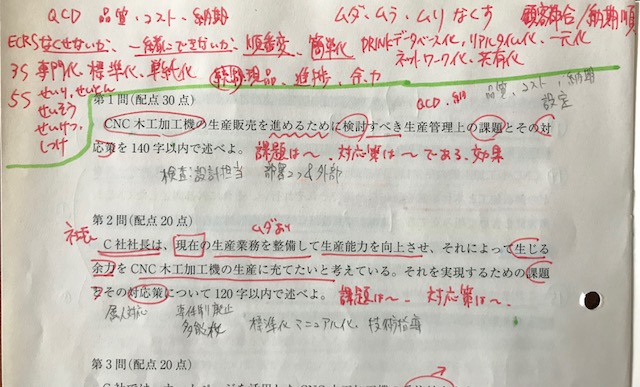 QCD 品質、コスト、納期 ムダ、ムラ、ムリなくす 顧客都合/納期順
ECRSなくせないか、一緒にできないか、順番変、簡単化 DRINKデータベース化、リアルタイム化、一元化
ネットワーク化、共有化
3S 専門化、標準化、単純化 現品、進捗、余力
5S せいり、せいとん
せいそう
せいけつ
しつけ
第1問(配点30点)
QCD 品質、コスト、納期
設定
CNC木工加工機の生産販売を進めるために検討すべき生産管理上の課題とその対
応策を140字以内で述べよ。 課題は〜、対応策は〜である。効果
検査:設計担当
第2問(配点20点)
ムダあり
C社社長は、現在の生産業務を整備して生産能力を向上させ、それによって生じる
余力をCNC木工加工機の生産に充てたいと考えている。それを実現するための課題
とその対応策について120字以内で述べよ。 課題は〜、対応策は〜、
多能化 標準化 マニュアル化、技術指導
第3問(配点20点)